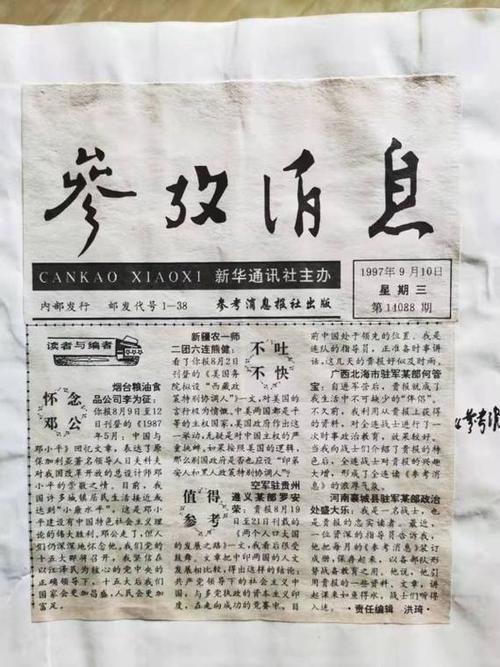 参考消息
CANKAO XIAOXI 新华通讯社主办
内部发行 邮发代号 1-38 参考消息报社出版
1997年9月10日
星期三
第14088期
读者与编者
怀念
邓公
烟台粮油食
品公司李为征:
你报8月9日至12
日刊登的《1987
年5月:中国与
邓小平》回忆文章,表达了原
保加利亚著名领导人日夫科夫
对我国改革开放的总设计师邓
小平的崇敬之情。目前,我
国许多城镇居民生活接近或
达到“小康水平”。这是邓小
平建设有中国特色社会主义理
论的伟大胜利。邓公走了,但人
们仍深深地怀念他。我们党的
十五大即将召开,我坚信在
以江泽民为核心的党中央的
正确领导下,十五大后我们
国家会更加昌盛,人民会更加
富足。
不吐
不快
新疆农一师
二团六连熊健:
看了你报8月2日
刊登的《美国务
院拟设“西藏政
策特别协调人”》一文,对美国的
言行极为愤慨。中美两国都是平
等的主权国家,美国政府作出这
一举动,无疑是对中国主权的严
重挑衅。如果按照美国的逻辑,
那么别国政府是否也应设“印第
安人和黑人政策特别协调人”?
值得
参考
空军驻贵州
遵义某部罗安
荣:贵报8月19
日至21日刊载的
《两个人口大国
的发展之路》一文,我看后很受
鼓舞。文中把中印两国的人文
发展相比较,得出这样的结论:
共产党领导下的社会主义中国,
与多党执政的资本主义印度,
在走向成功的竞赛中,目
前中国处于领先的位置。我是
连队的指导员,正准备时事讲
话,这几天的贵报好似及时雨。
广西北海市驻军某部何管
宝:自进军营后,贵报就成了
我生活中不可缺少的“伴侣”。
不久前,我利用从贵报上获得的
资料,对全连战士进行了一
次时事政治教育,效果较好。
当我向战士们介绍了贵报的特
色后,全连战士对贵报的兴趣
大增,形成了全连读《参考消
息》的浓厚气氛。
河南襄城县驻军某部政治
处盛大乐:我是一名战士,也
是贵报的忠实读者。最近,
一位资深的指导员告诉我,他
把每月的《参考消息》装订
成册,保存起来,以备部队形
势战备教育之用。他说,他引
用贵报的一些资料、文章,讲
起课来如鱼得水,战士们听得
入迷。
·责任编辑 洪琦·
《参考消